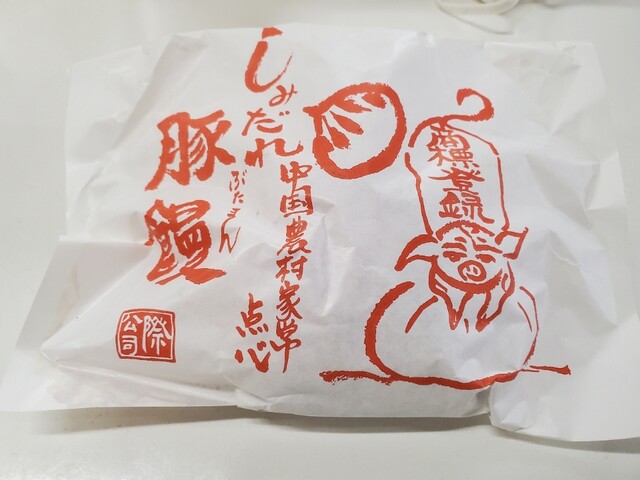 しみだれ
豚饅
ぶたまん
中国農村家常
点心
商標登録
際
公司